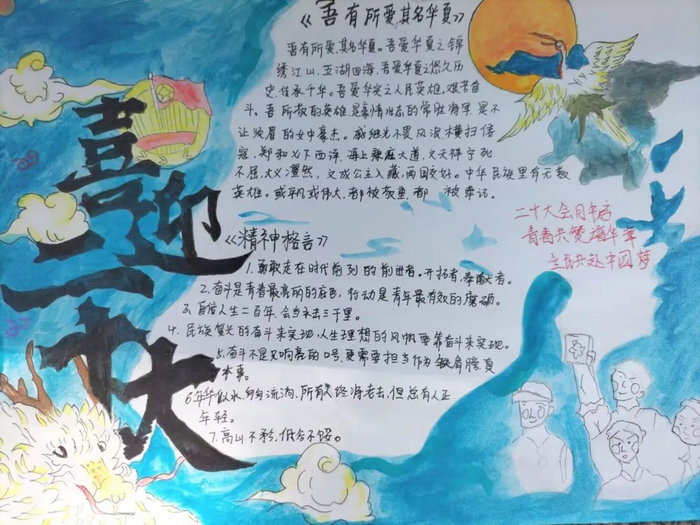 喜迎二十大
《吾有所爱,其名华夏》
吾有所爱,其名华夏。吾爱华夏之锦
绣江山,五湖四海,吾爱华夏之悠久历
史,传承千年。吾爱华夏之人民英雄,艰苦奋
斗。吾所敬的英雄,是豪情壮志的常胜将军,是不
让须眉的女中豪杰。戚继光不畏风浪横扫倭
寇,郑和七下西洋,海上康庄大道,文天祥宁死
不屈,大义凛然,文成公主入藏,两国交好。中华民族里有无数
英雄。或平凡或伟大,都被敬重,都被牢记。
《精神格言》
1.勇敢走在时代前列的前进者。开拓者,奉献者。
2.奋斗是青春最亮丽的底色,行动是青年最有效的磨砺。
3.自信人生二百年,会当水击三千里。
4.民族复兴的奋斗来实现,人生理想的风帆要靠奋斗来实现。
5.奋斗不是只响亮的口号,更需要担当作为
本事。
6.年华似水,匆匆流淌,所有人终将老去,但总有人正
年轻。
7.高山不矜,低谷不馁。
二十大会月年启
青春共赞华章
全民共赴中国梦